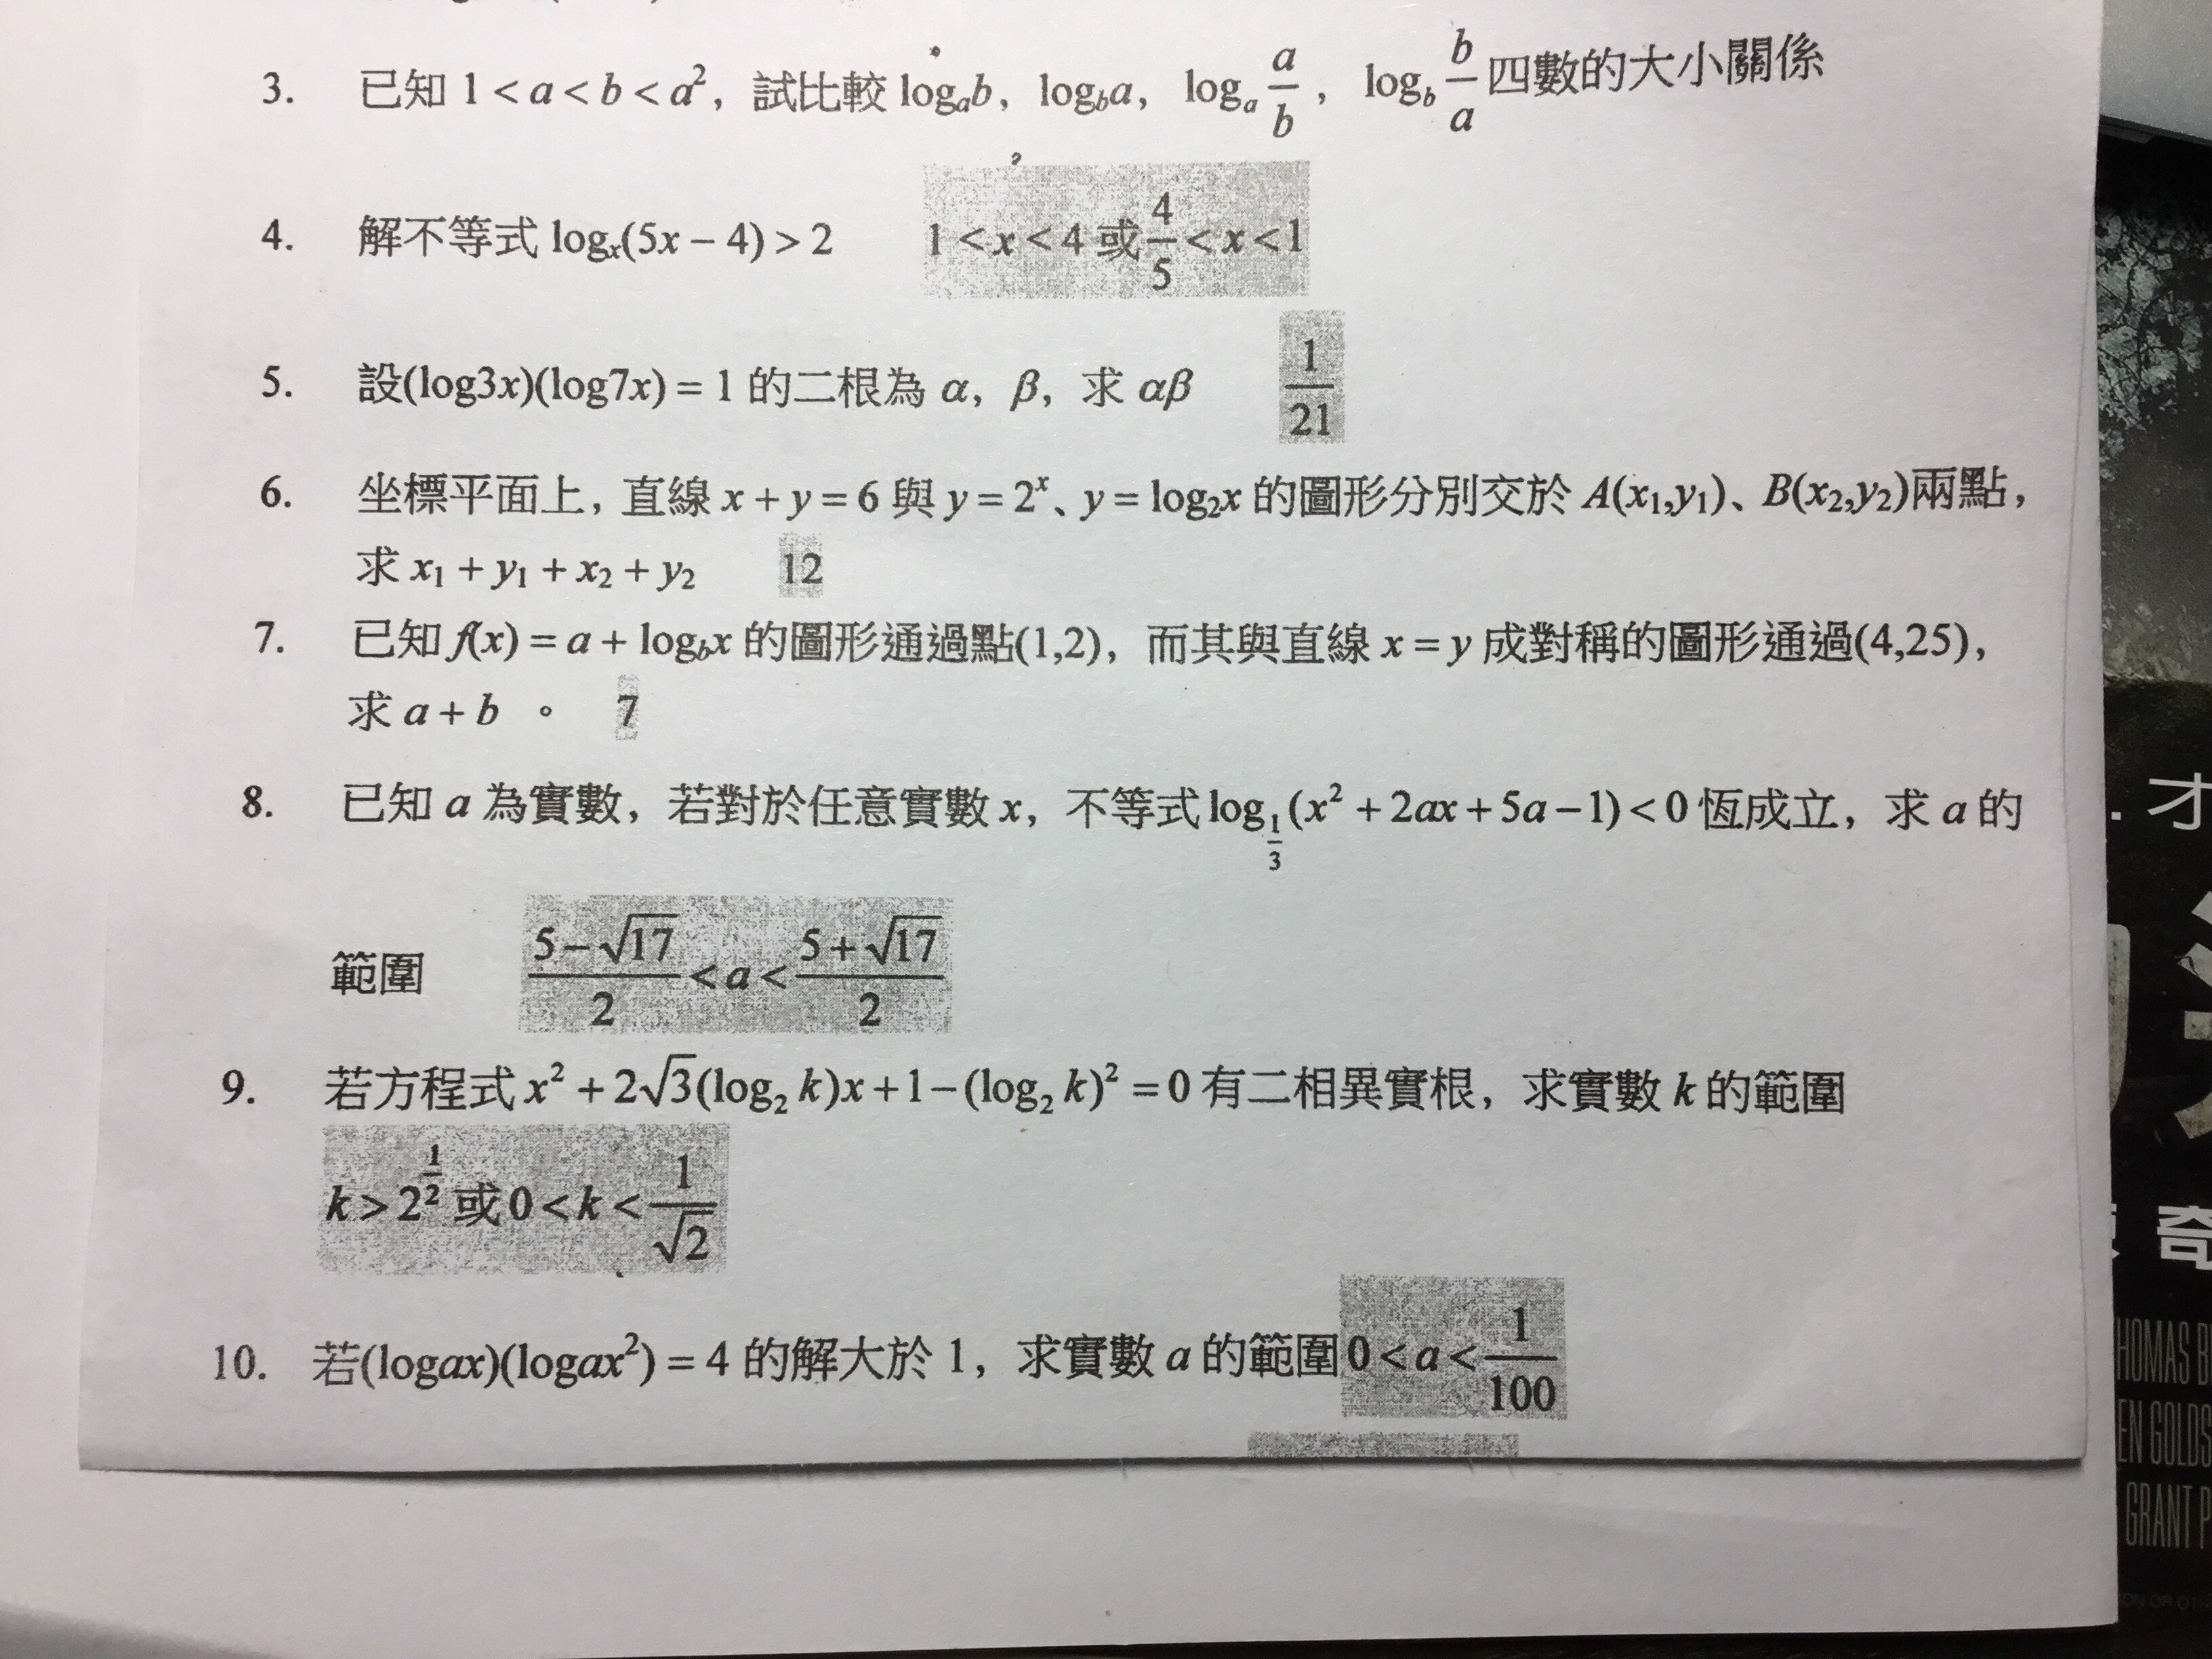 3. 已知 1 < a < b < a²，試比較 logₐb，log_b a，logₐ a/b，log_b b/a 四數的大小關係
4. 解不等式 logₓ(5x – 4) > 2 1 < x < 4 或 4/5 < x < 1
5. 設(log3x)(log7x) = 1 的二根為 α，β，求 αβ 1/21
6. 坐標平面上，直線 x + y = 6 與 y = 2ˣ、y = log₂x 的圖形分別交於 A(x₁,y₁)、B(x₂,y₂)兩點，
求 x₁ + y₁ + x₂ + y₂ 12
7. 已知 f(x) = a + log_b x 的圖形通過點(1,2)，而其與直線 x = y 成對稱的圖形通過(4,25)，
求 a + b 。 7
8. 已知 a 為實數，若對於任意實數 x，不等式 log_{1/3}(x² + 2ax + 5a – 1) < 0 恆成立，求 a 的
範圍 (5 – √17)/2 < a < (5 + √17)/2
9. 若方程式 x² + 2√3(log₂ k)x + 1 – (log₂ k)² = 0 有二相異實根，求實數 k 的範圍
k > 2^{1/2} 或 0 < k < 1/√2
10. 若(logax)(logax²) = 4 的解大於 1，求實數 a 的範圍 0 < a < 1/100
才
奇
GRANT P